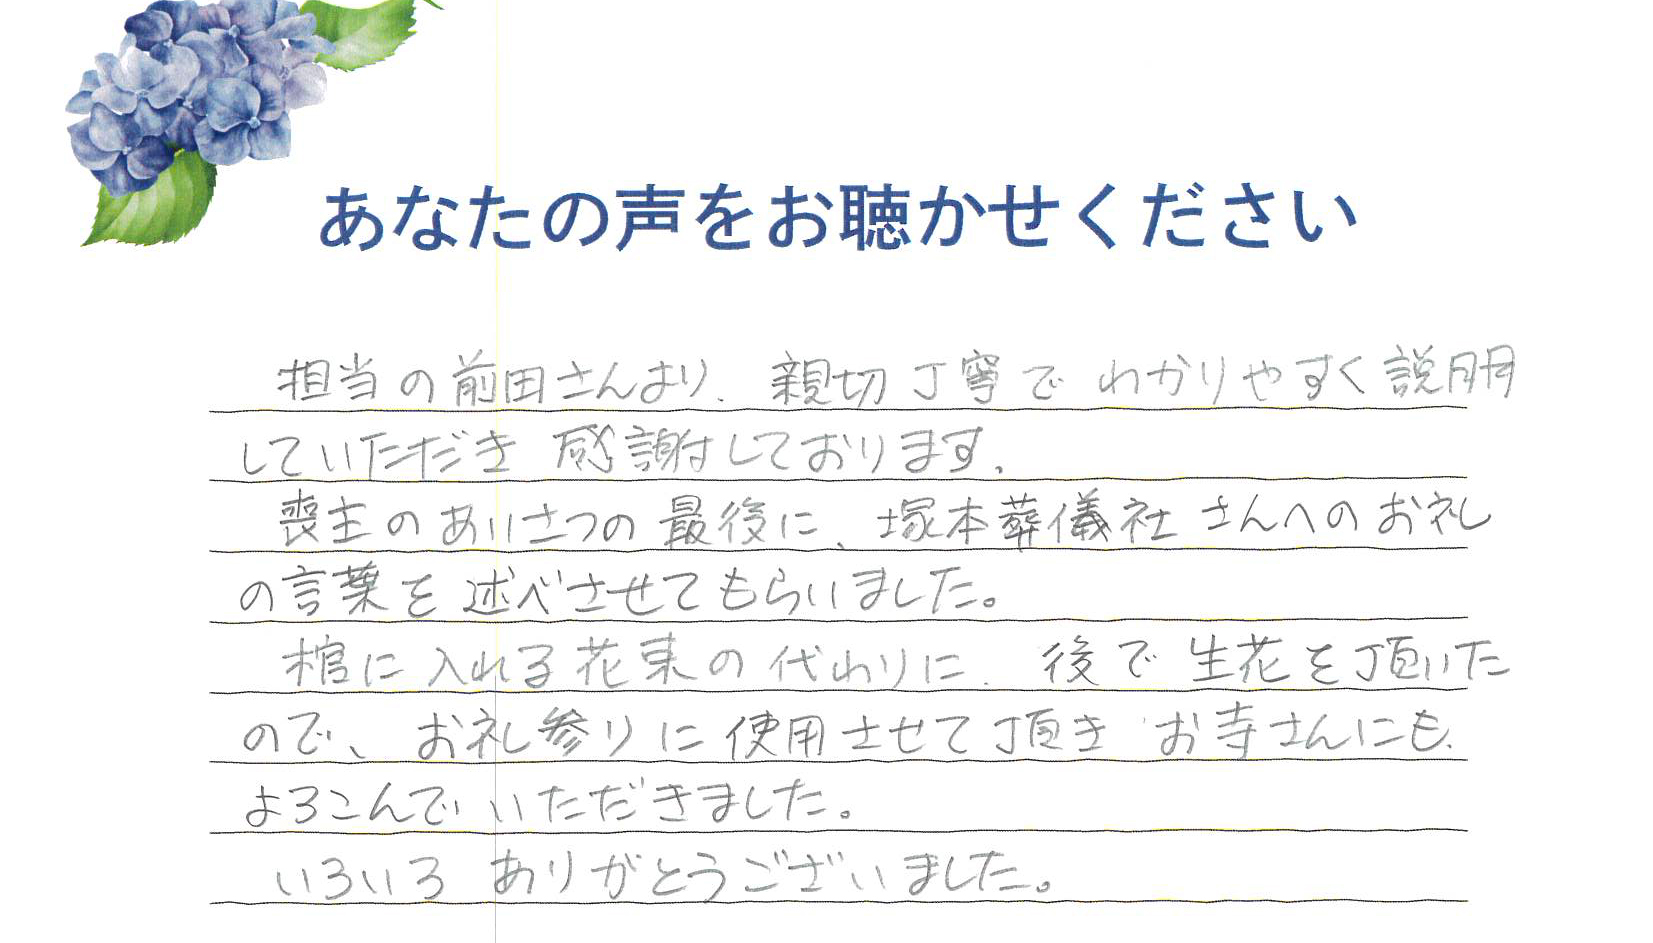 あなたの声をお聴かせください
担当の前田さんより、親切丁寧でわかりやすく説明
していただき感謝しております。
喪主のあいさつの最後に、塚本葬儀社さんへのお礼
の言葉を述べさせてもらいました。
棺に入れる花束の代わりに、後で生花を頂いた
ので、お礼参りに使用させて頂きお寺さんにも、
よろこんでいただきました。
いろいろありがとうございました。